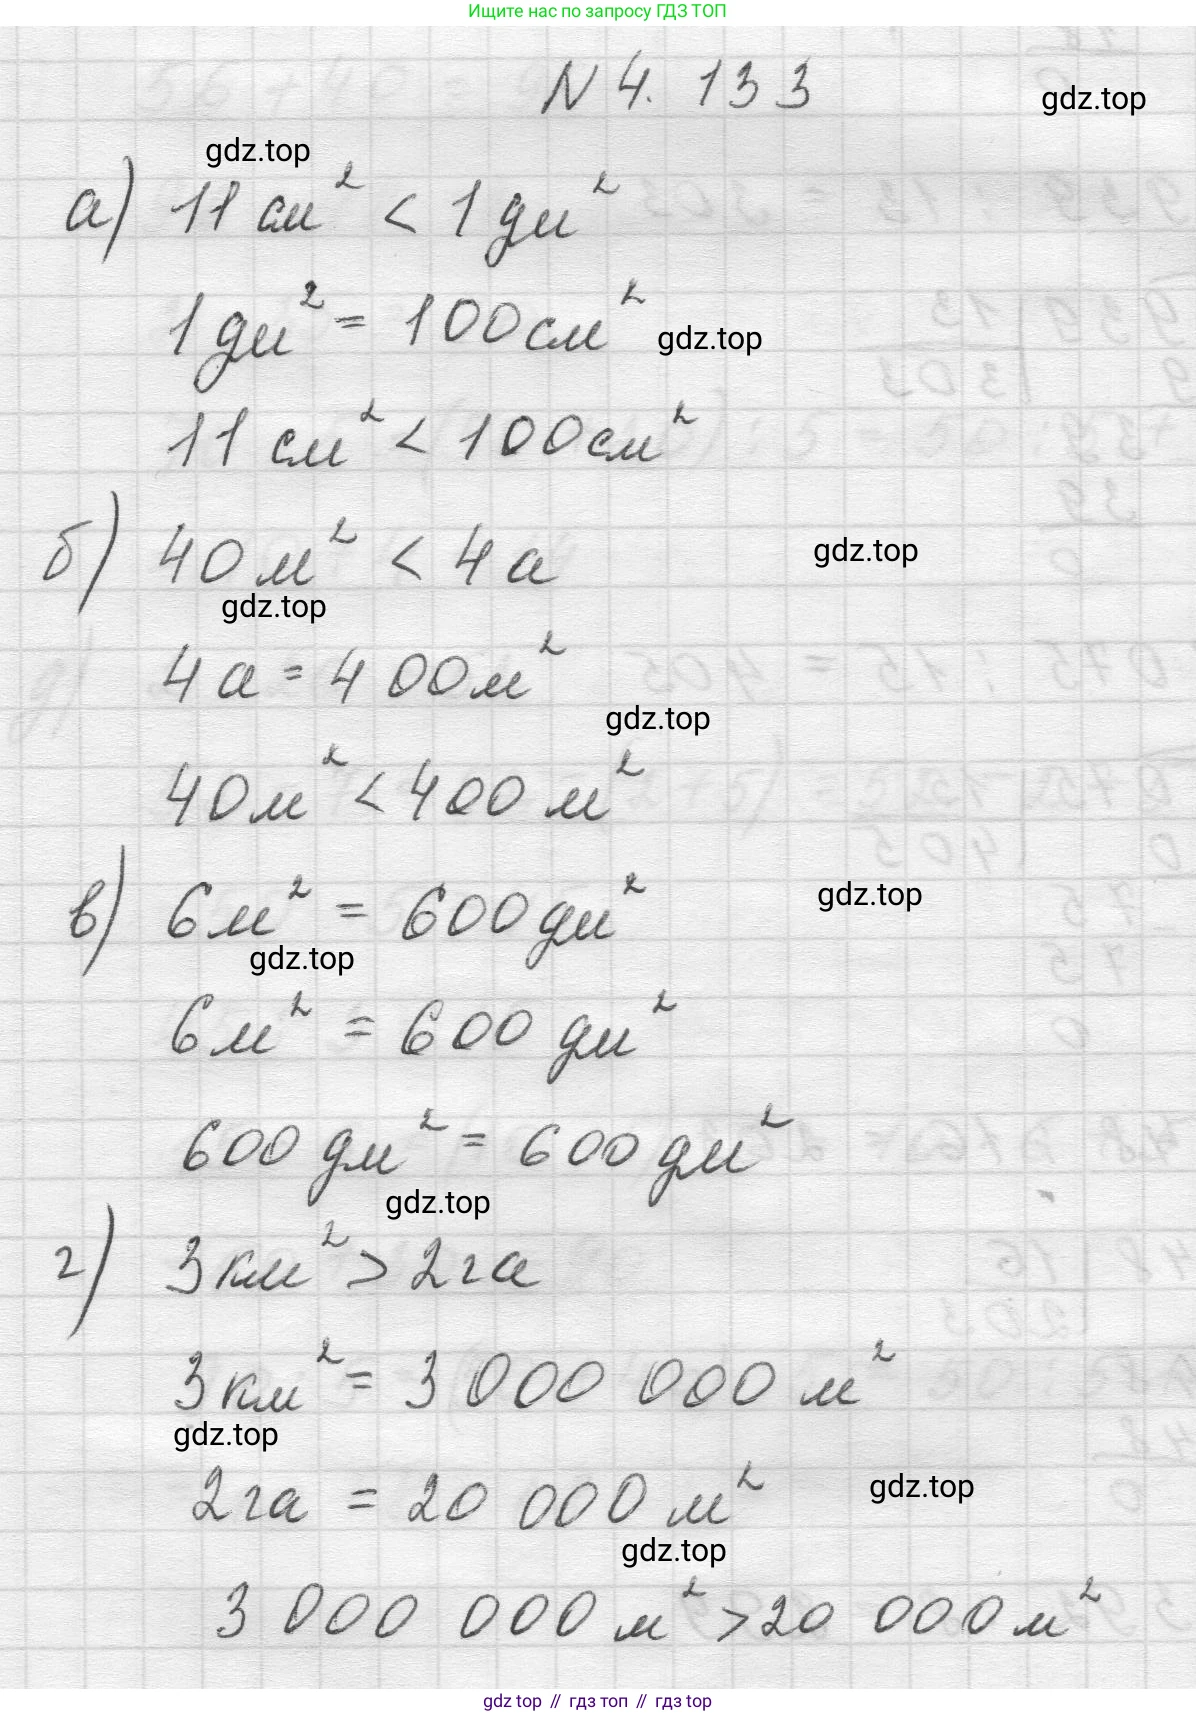 Ищите нас по запросу ГДЗ ТОП
N 4. 133
gdz.top
gdz.top
а) 11 см² < 1 дм²
1 дм² = 100 см²
gdz.top
11 см² < 100 см²
б) 40 м² < 4 а
gdz.top
gdz.top
4 а = 400 м²
gdz.top
40 м² < 400 м²
в) 6 м² = 600 дм²
gdz.top
gdz.top
6 м² = 600 дм²
600 дм² = 600 дм²
gdz.top
г) 3 км² > 2 га
3 км² = 3 000 000 м²
gdz.top
2 га = 20 000 м²
gdz.top
gdz.top
3 000 000 м² > 20 000 м²
gdz top // гдз топ // гдз top